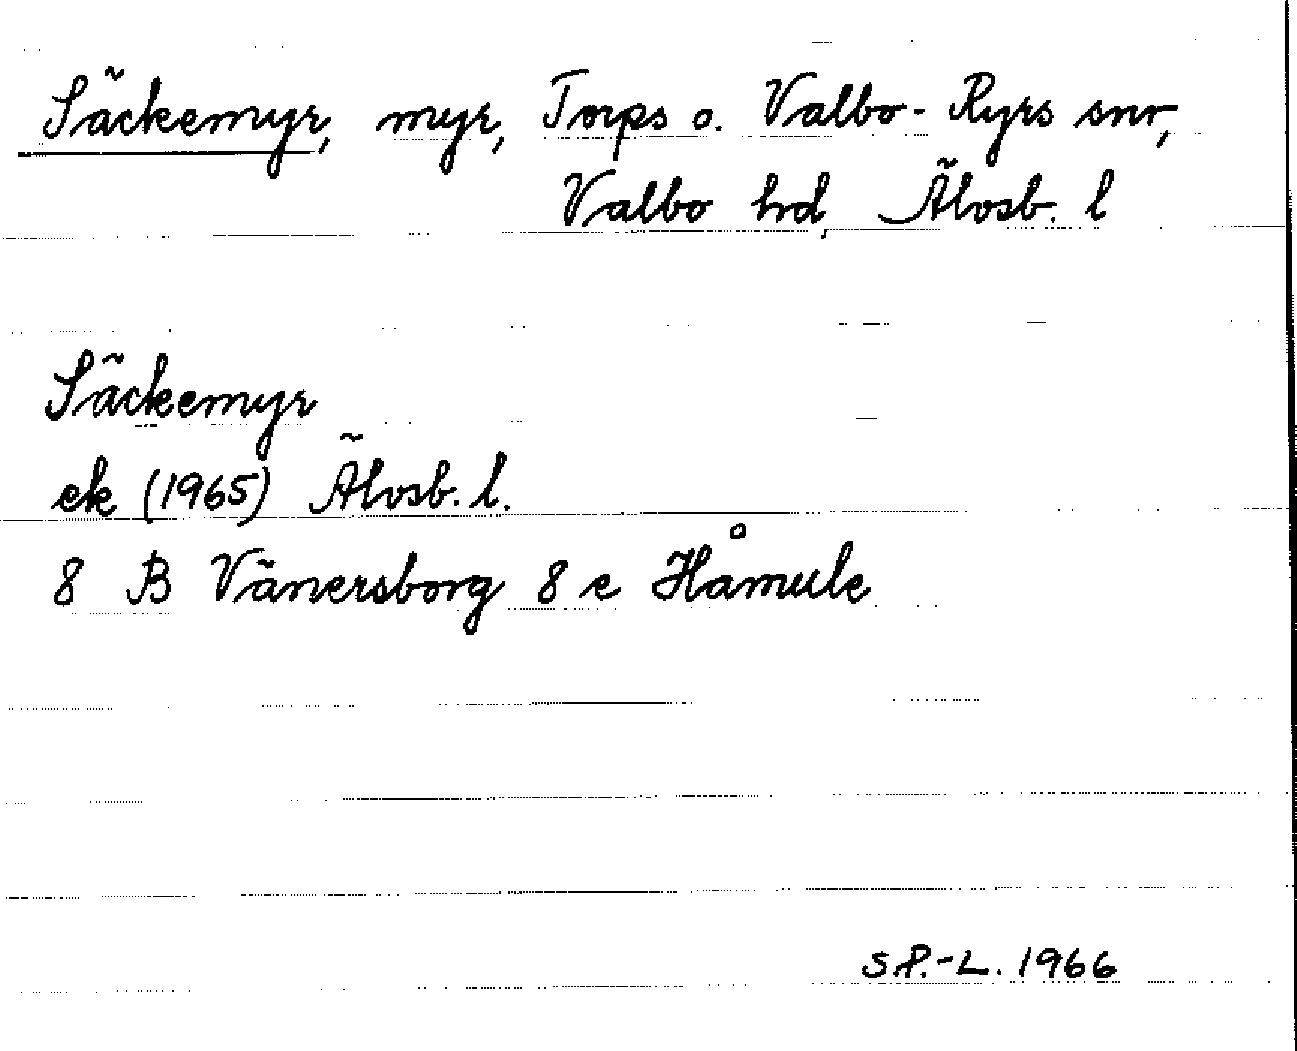 Säckemyr, myr, Torps o. Valbo-Ryrs snr,
Valbo hd, Älvsb. l
Säckemyr
ek (1965) Älvsb. l.
8 B Vänersborg 8 e Håmule
S P.-L. 1966